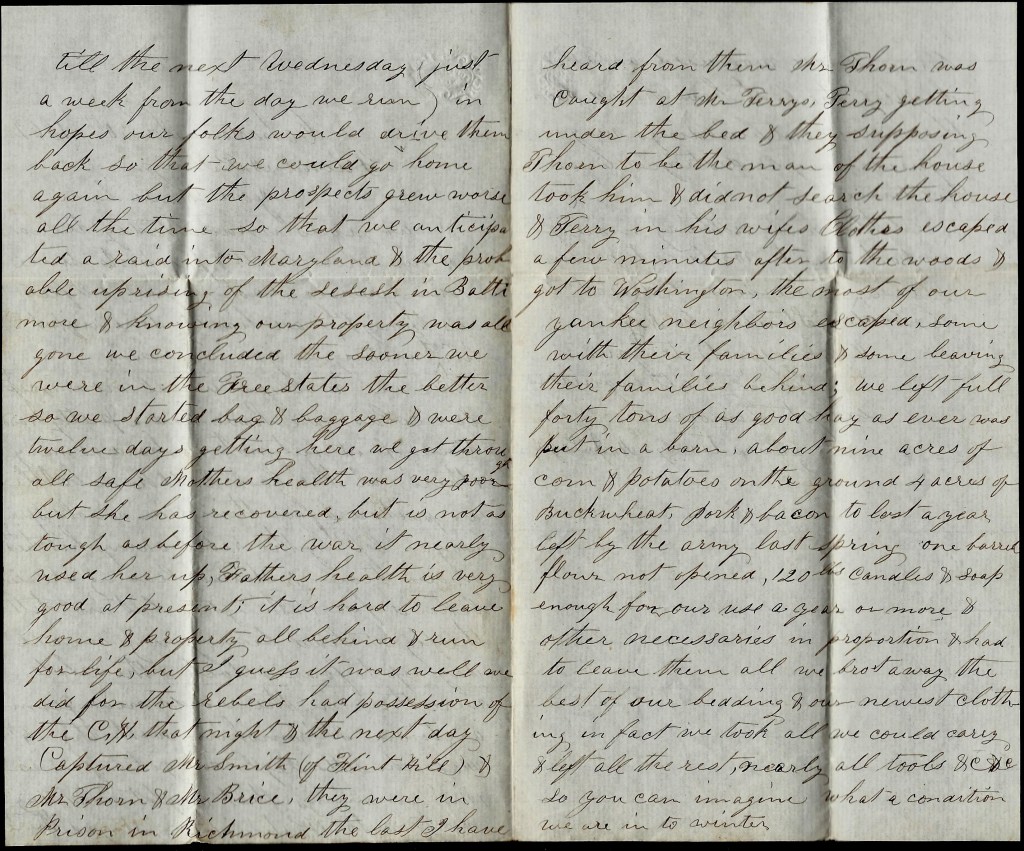 till the next Wednesday (just
a week from the day we run) in
hopes our folks would drive them
back so that we could go home
again but the prospects grew worse
all the time so that we anticipa
ted a raid into Maryland & the prob
able uprising of the sesesh in Balti
more & knowing our property was all
gone we concluded the sooner we
were in the Free States the better
so we started bag & baggage & were
twelve days getting here we got throu
gh
all safe Mothers health was very poor
but she has recovered, but is not as
tough as before the war, it nearly
used her up, Fathers health is very
good at present; it is hard to leave
home & property all behind & run
for life, but I guess it was well we
did for the rebels had possession of
the C,H, that night & the next day
Captured Mr Smith (of Flint Hill) &
Mr Thorn & Mr Brice, they were in
Prison in Richmond the last I have
heard from them Mr Thorn was
caught at Mr Ferrys, Ferry getting
under the bed & they supposing
Thorn to be the man of the house
took him & did not search the house
& Ferry in his wifes Clothes escaped
a few minutes after to the woods &
got to Washington, the most of our
yankee neighbors escaped, some
with their families & some leaving
their families behind; we left full
forty tons of as good hay as ever was
put in a barn, about nine acres of
corn & potatoes on the ground 4 acres of
Buckwheat, pork & bacon to last a year
left by the army last spring one barrel
flour not opened, 120 lbs candles & soap
enough for our use a year or more &
other necessaries in proportion & had
to leave them all we bro't away the
best of our bedding & our newest cloth
ing in fact we took all we could carry
& left all the rest, nearly all tools &c &c
so you can imagine what a condition
we are in to winter